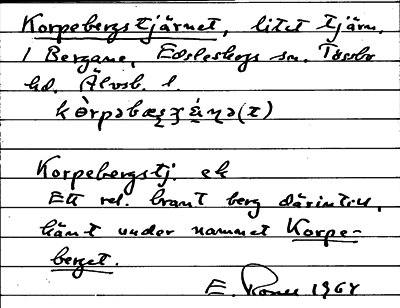 Korpebergstjärnet, litet tjärn,
i Bergane, Edsleskogs sn. Tössbo
hd. Älvsb. l.
Korpebergstj. ek
Ett rel. brant berg därintill,
känt under namnet Korpe-
berget.
E. 1964